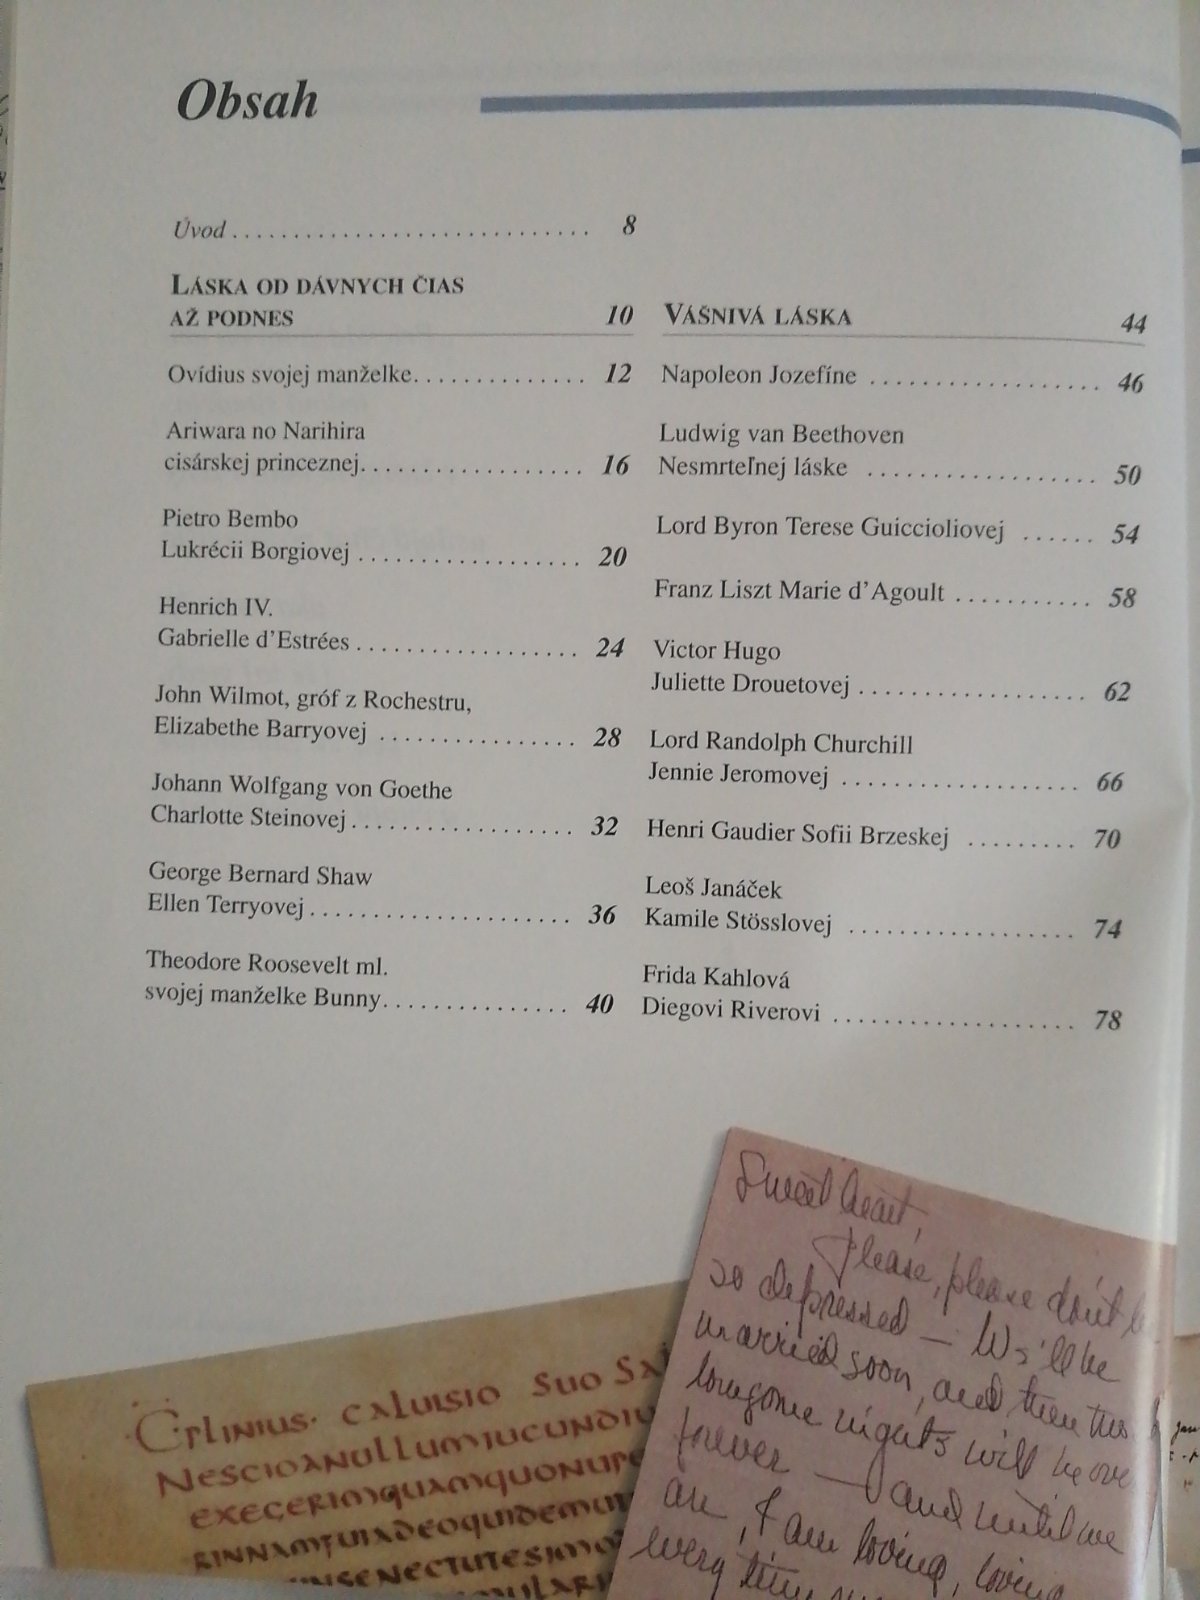 Obsah
Úvod .............................. 8
LÁSKA OD DÁVNYCH ČIAS
AŽ PODNES 10
Ovídius svojej manželke.............. 12
Ariwara no Narihira
cisárskej princeznej.................. 16
Pietro Bembo
Lukrécii Borgiovej .................. 20
Henrich IV.
Gabrielle d'Estrées .................. 24
John Wilmot, gróf z Rochestru,
Elizabethe Barryovej ................ 28
Johann Wolfgang von Goethe
Charlotte Steinovej .................. 32
George Bernard Shaw
Ellen Terryovej ..................... 36
Theodore Roosevelt ml.
svojej manželke Bunny............... 40
VÁŠNIVÁ LÁSKA 44
Napoleon Jozefíne ................... 46
Ludwig van Beethoven
Nesmrteľnej láske ................... 50
Lord Byron Terese Guiccioliovej ...... 54
Franz Liszt Marie d'Agoult ........... 58
Victor Hugo
Juliette Drouetovej .................. 62
Lord Randolph Churchill
Jennie Jeromovej .................... 66
Henri Gaudier Sofii Brzeskej ......... 70
Leoš Janáček
Kamile Stösslovej ................... 74
Frida Kahlová
Diegovi Riverovi .................... 78
Sweetheart,
Please, please don't be
so depressed — We'll be
married soon, and then these
lonesome nights will be over
forever — and until we
are, I am loving, loving
every
C PLINIUS · CALUISIO SUO SA
NESCIOANULLUMIUCUNDIU
EXEGERIMQUAMQUONUPE
RIMNAMFUIADEOQUIDEMUT